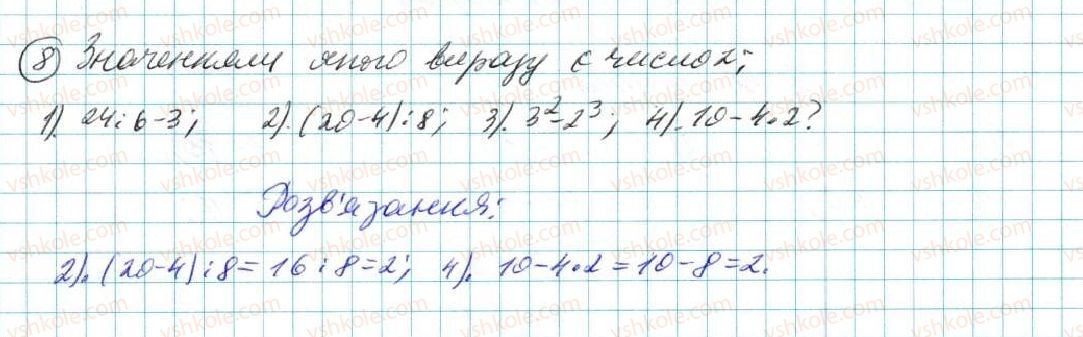 8 Значенням якого виразу є число 2:
1). 24:6-3; 2). (20-4):8; 3). 3²-2³; 4). 10-4•2?
Розв'язання:
2). (20-4):8=16:8=2; 4). 10-4•2=10-8=2.